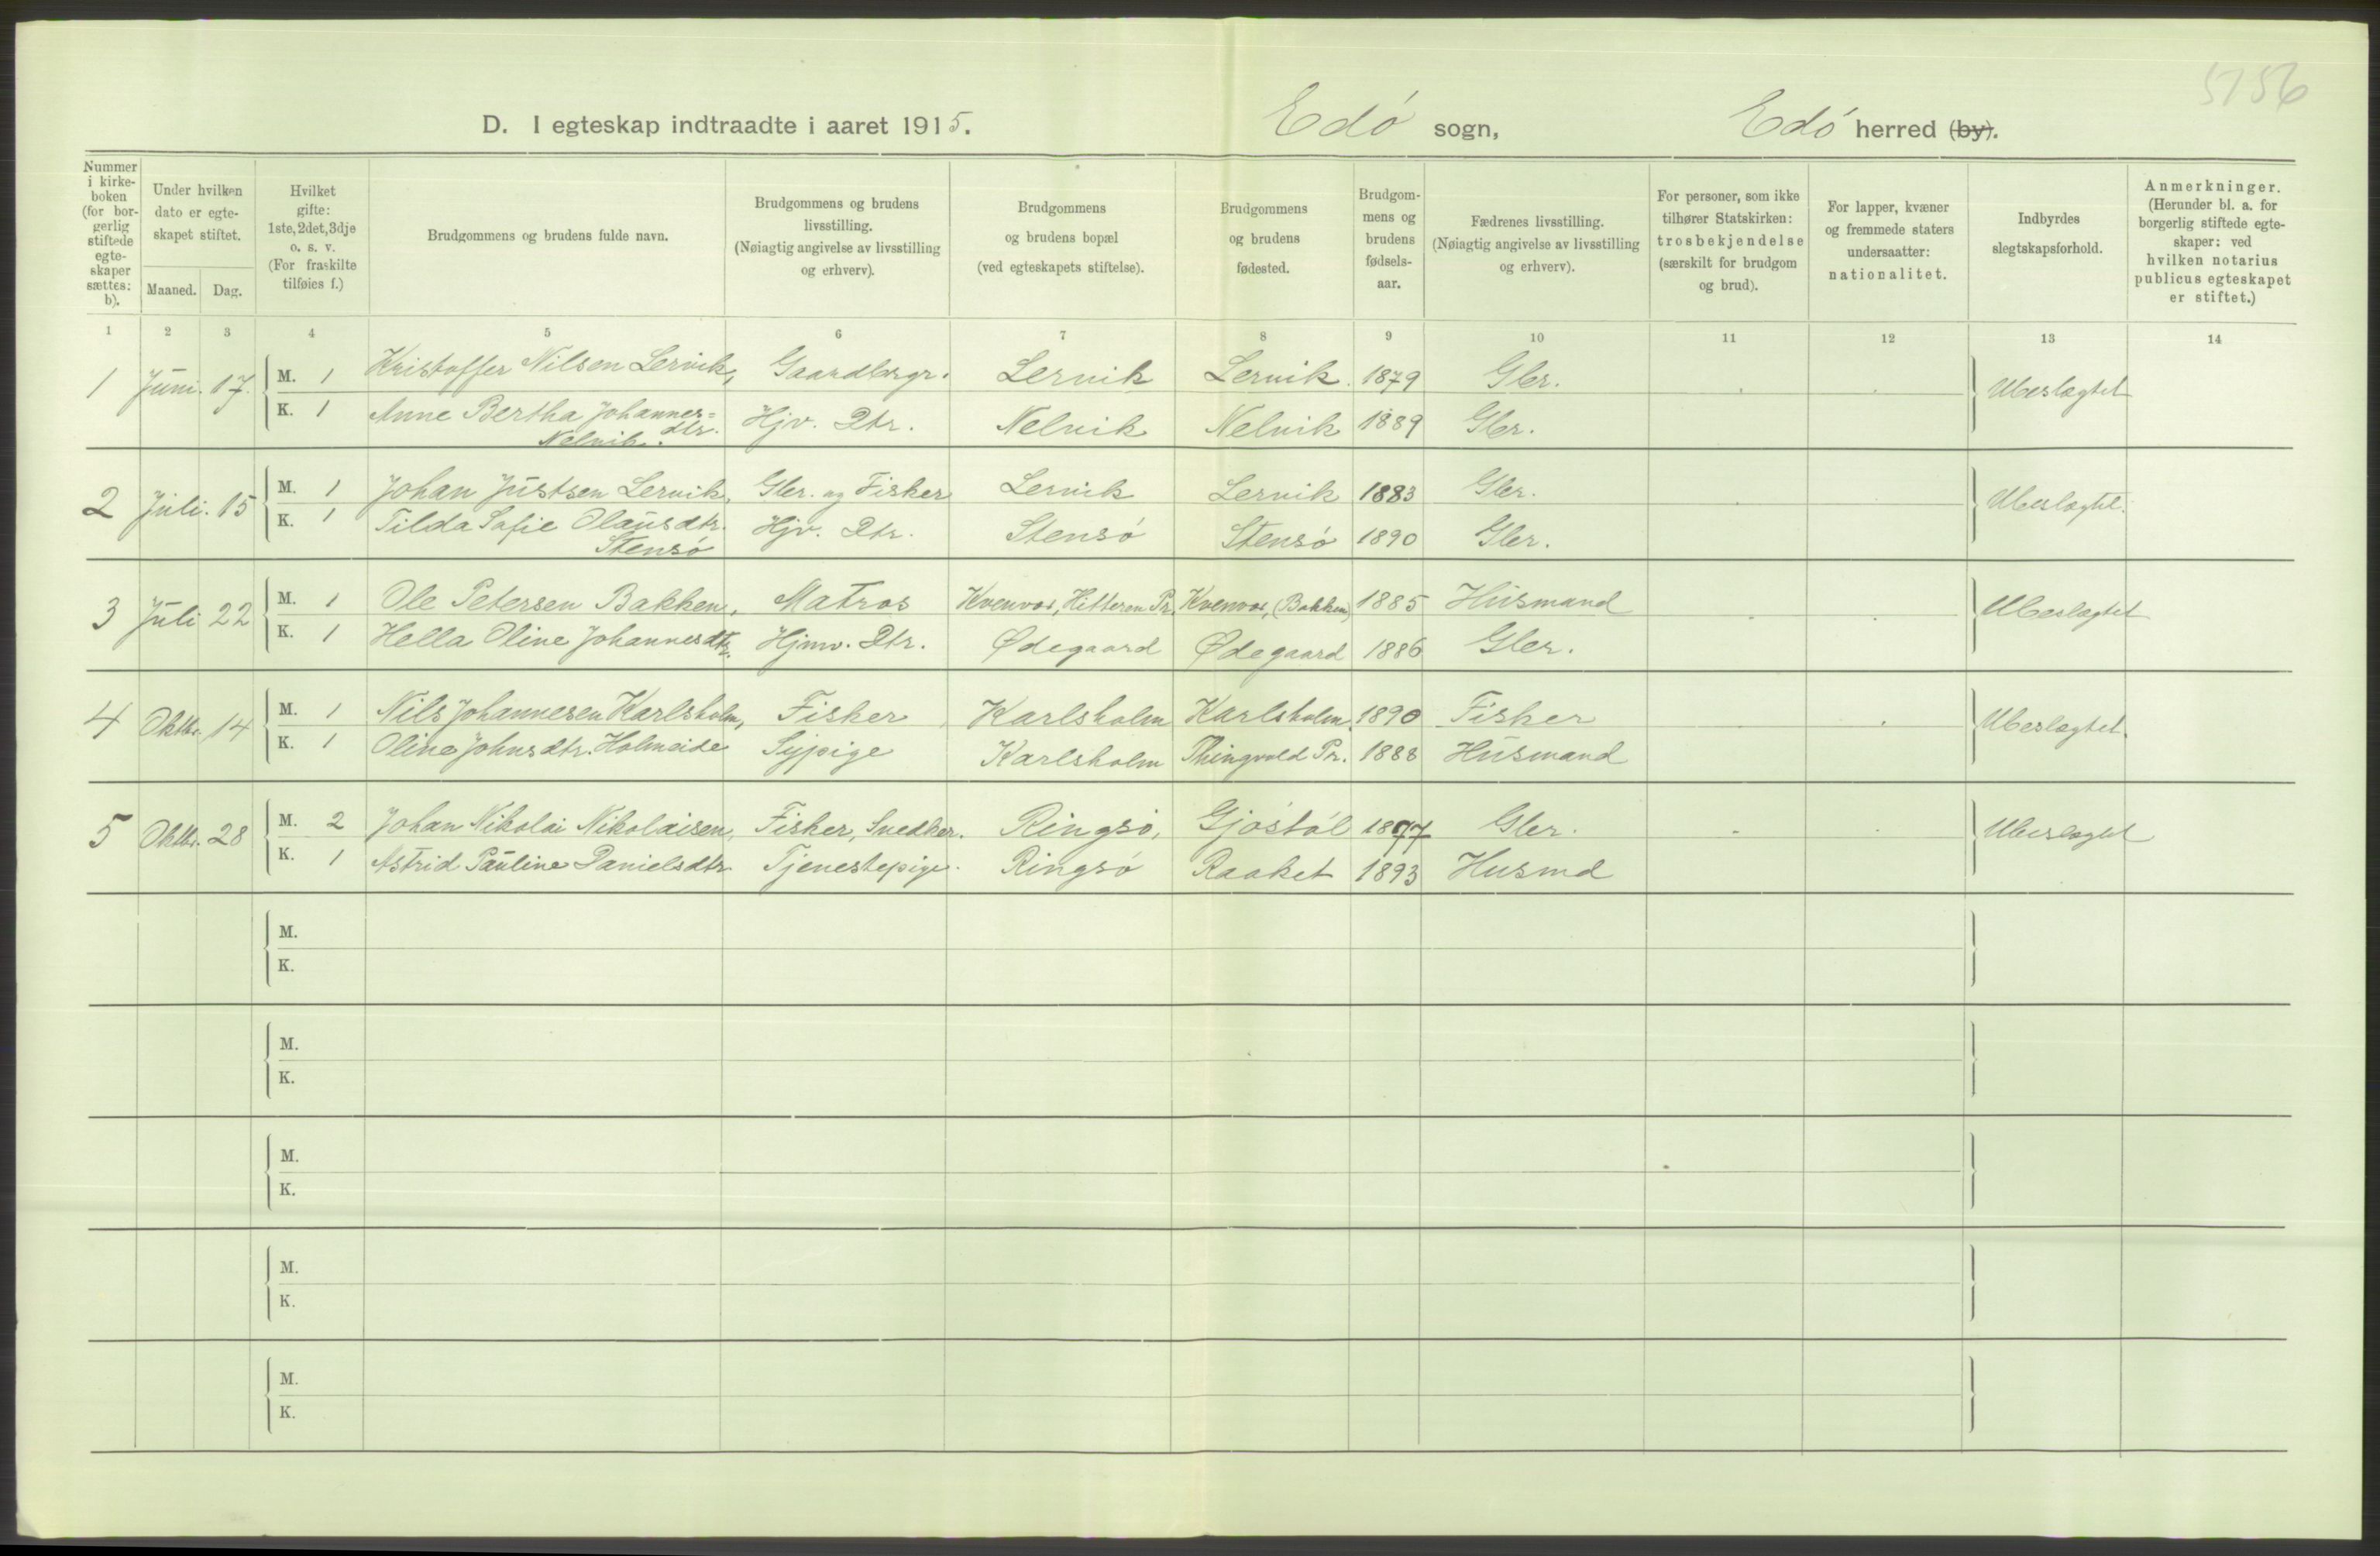 5756
D. I egteskap indtraadte i aaret 1915. Edó sogn, Edó herred (by).
Nummer i kirke-boken (for bor-gerlig stiftede egte-skaper sættes: b).
Under hvilken dato er egte-skapet stiftet.
Maaned. Dag.
Hvilket gifte: 1ste, 2det, 3dje o. s. v. (For fraskilte tilføies f.)
Brudgommens og brudens fulde navn.
Brudgommens og brudens livsstilling. (Nøiagtig angivelse av livsstilling og erhverv).
Brudgommens og brudens bopæl (ved egteskapets stiftelse).
Brudgommens og brudens fødested.
Brudgom-mens og brudens fødsels-aar.
Fædrenes livsstilling. (Nøiagtig angivelse av livsstilling og erhverv).
For personer, som ikke tilhører Statskirken: trosbekjendelse (særskilt for brudgom og brud).
For lapper, kvæner og fremmede staters undersaatter: nationalitet.
Indbyrdes slegtskapsforhold.
Anmerkninger. (Herunder bl. a. for borgerlig stiftede egte-skaper: ved hvilken notarius publicus egteskapet er stiftet.)
1 2 3 4 5 6 7 8 9 10 11 12 13 14
1 Juni. 17. M. 1 Kristoffer Nilsen Lervik, Gaardbrgr. Lervik Lervik. 1879 Gbr. Ubeslægtet
K. 1 Anne Bertha Johannes=dtr. Hjv. Dtr. Nelvik Nelvik 1889 Gbr.
Nelvik.
2 Juli. 15 M. 1 Johan Justsen Lervik, Gbr. og Fisker Lervik Lervik 1883 Gbr. Ubeslægtet.
K. 1 Tilda Sofie Olausdtr. Hjv. Dtr. Stensó Stensó 1890 Gbr.
Stensó
3 Juli 22 M. 1 Ole Petersen Bakken, Matros Kvenvær, Hitteren Pr. Kvenvær, (Bakken) 1885 Husmand Ubeslægtet
K. 1 Hella Oline Johannesdtr. Hjmv. Dtr. Ødegaard Ødegaard 1886 Gbr.
4 Oktbr. 14 M. 1 Nils Johannesen Karlsholm, Fisker Karlsholm Karlsholm, 1890 Fisker Ubeslægtet.
K. 1 Oline Johnsdtr. Holmeide Sypige Karlsholm Thingvold Pr. 1888 Husmand
5 Oktbr. 28 M. 2 Johan Nikolai Nikolaisen, Fisker, Snedker. Ringsó, Gjóstól 1877 Gbr. Ubeslægtet
K. 1 Astrid Pauline Danielsdtr. Tjenestepige. Ringsó Raaket 1893 Husmd
M.
K.
M.
K.
M.
K.
M.
K.
M.
K.